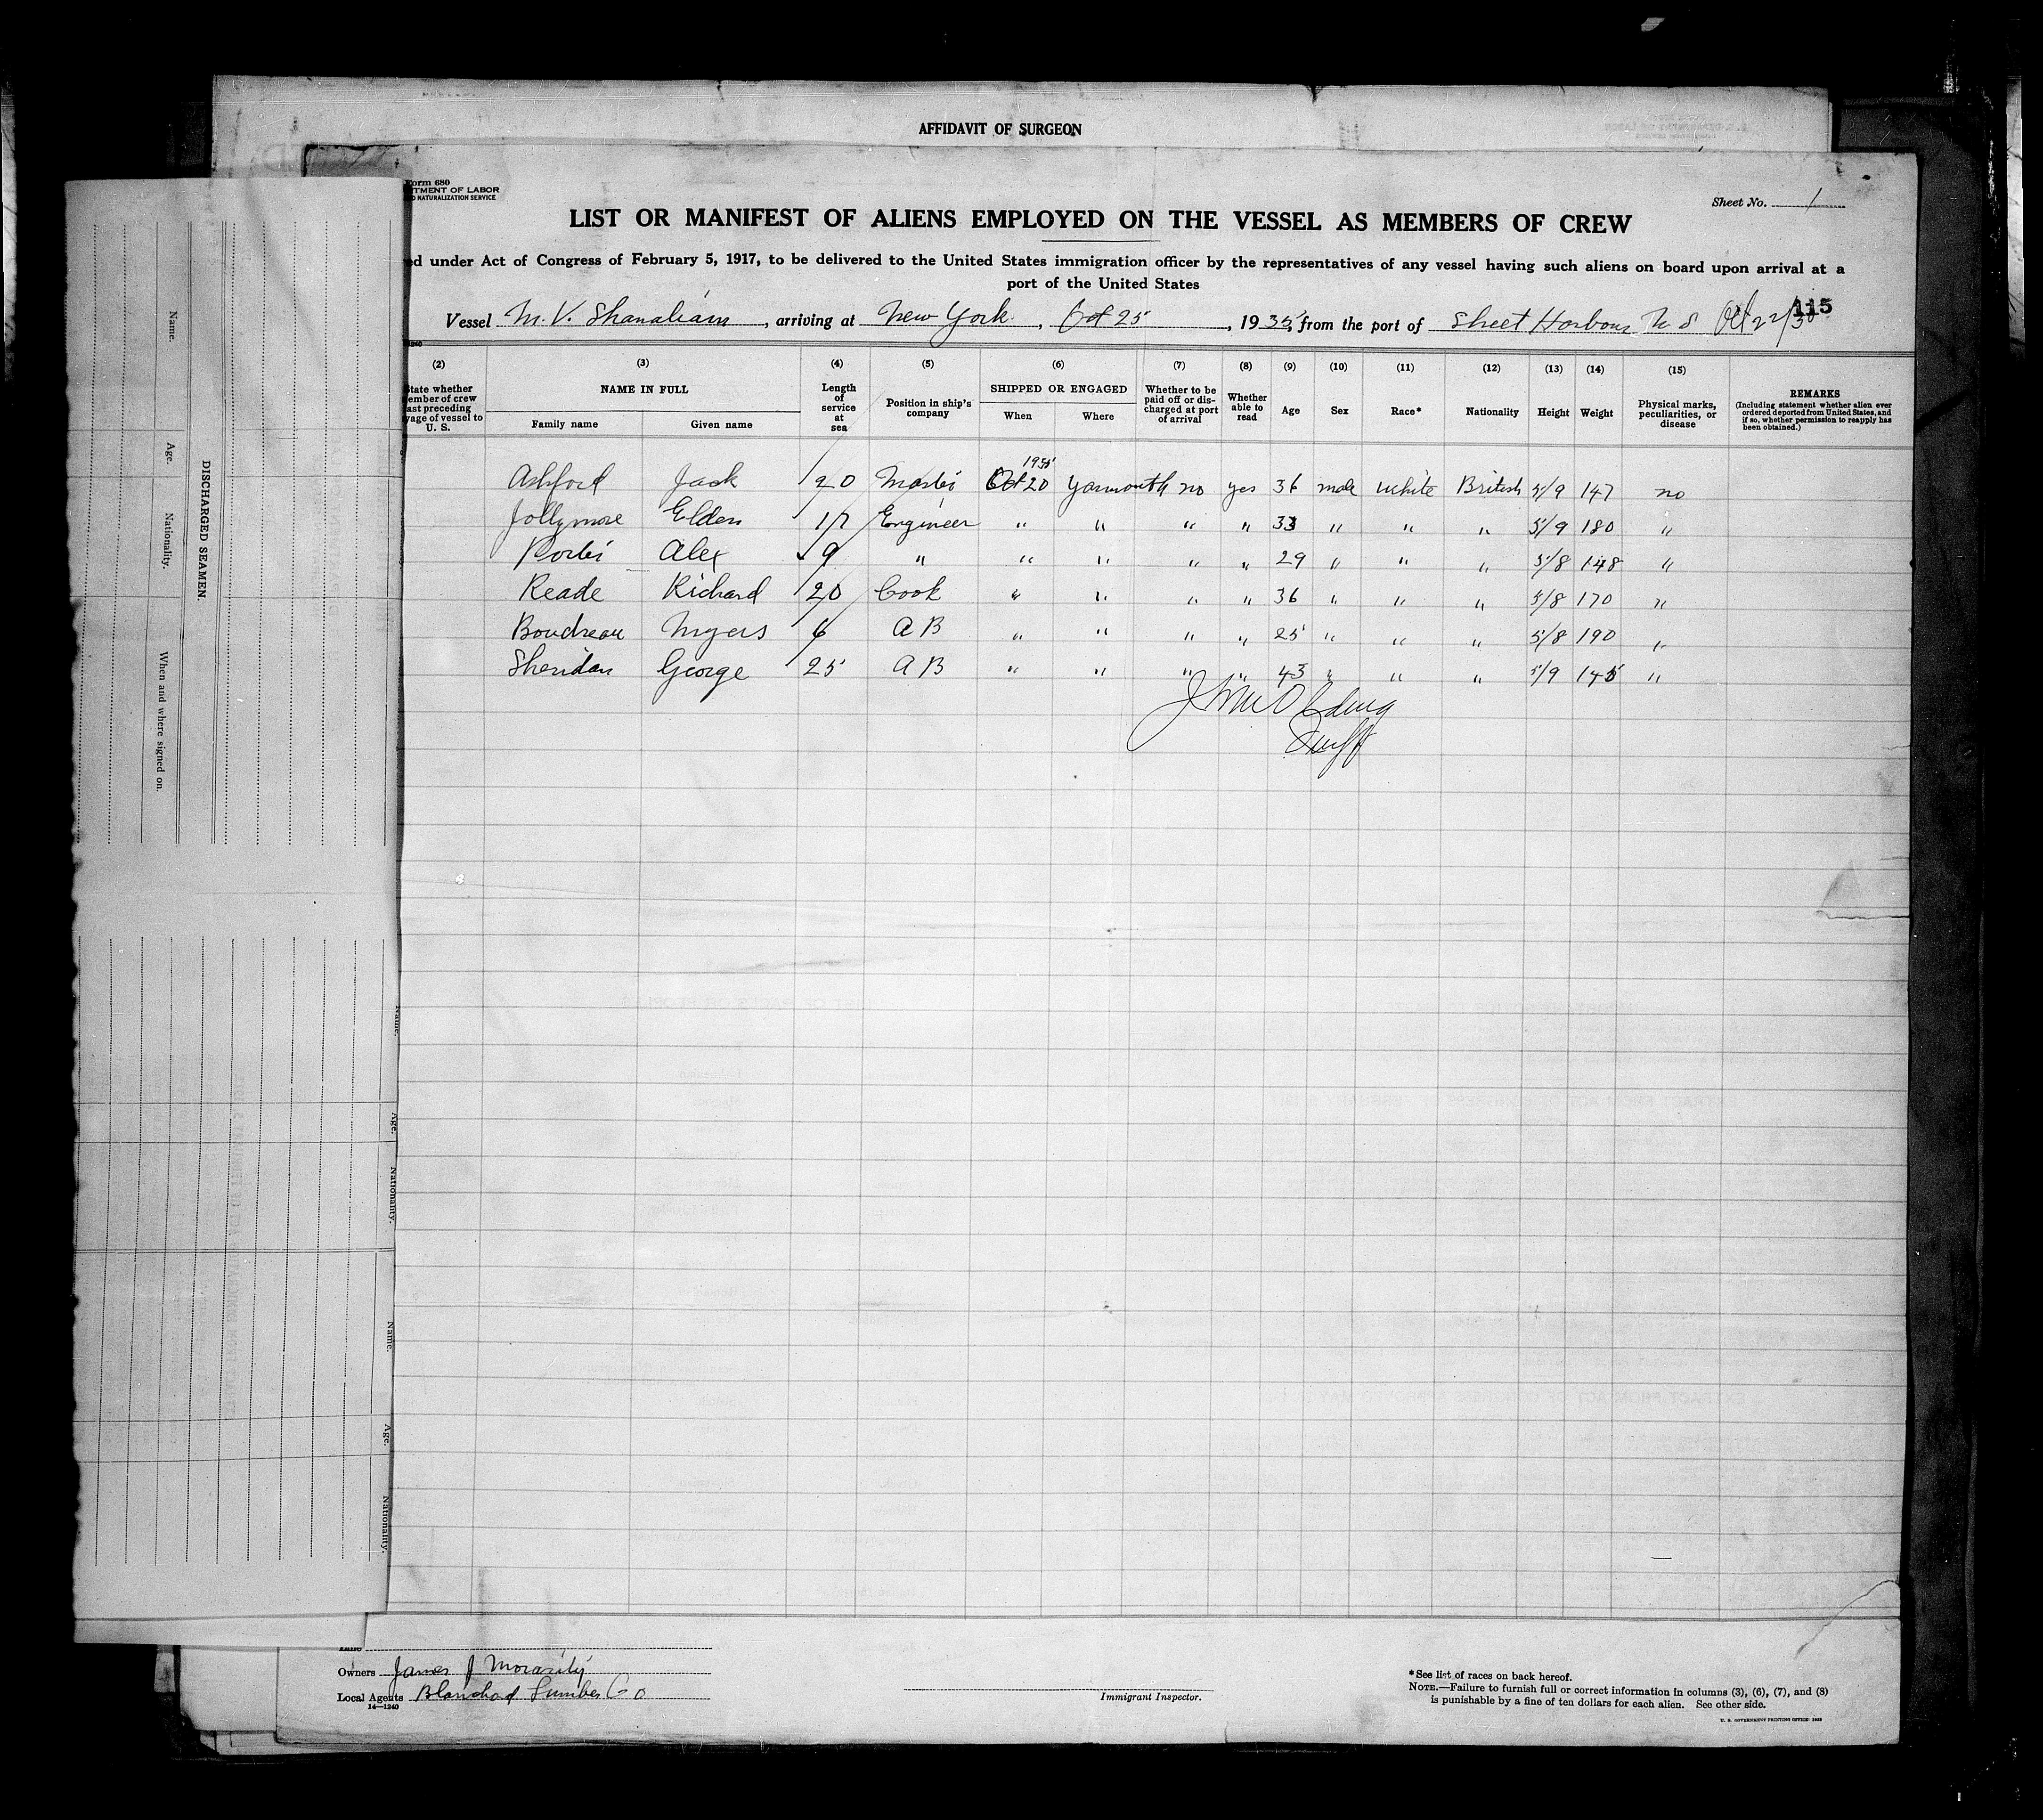 AFFIDAVIT OF SURGEON
Form 680
TMENT OF LABOR
D NATURALIZATION SERVICE
Sheet No. 1
LIST OR MANIFEST OF ALIENS EMPLOYED ON THE VESSEL AS MEMBERS OF CREW
ed under Act of Congress of February 5, 1917, to be delivered to the United States immigration officer by the representatives of any vessel having such aliens on board upon arrival at a
port of the United States
115
Vessel M.V. Shanalian, arriving at New York, Oct 25, 1935, from the port of Sheet Harbour N S Oct 22/35
(2) (3) (4) (5) (6) (7) (8) (9) (10) (11) (12) (13) (14) (15)
State whether
ember of crew
ast preceding
yage of vessel to
U. S.
NAME IN FULL
Family name Given name
Length
of
service
at
sea
Position in ship's
company
SHIPPED OR ENGAGED
When Where
Whether to be
paid off or dis-
charged at port
of arrival
Whether
able to
read
Age
Sex
Race*
Nationality
Height
Weight
Physical marks,
peculiarities, or
disease
REMARKS
(Including statement whether alien ever
ordered deported from United States, and
if so, whether permission to reapply has
been obtained.)
1935
Ashford Jack 20 Master Oct 20 Yarmouth no yes 36 male white British 5/9 147 no
Jollymore Elden 17 Engineer " " " " 33 " " " 5/9 180 "
Porter Alex 9 " " " " " 29 " " " 5/8 148 "
Reade Richard 20 Cook " " " " 36 " " " 5/8 170 "
Boudreau Myers 6 A B " " " " 25 " " " 5/8 190 "
Sheridan George 25 A B " " " " 43 " " " 5/9 145 "
DISCHARGED SEAMEN.
Name.
Age.
Nationality.
When and where signed on.
Name.
Age.
Nationality.
Name.
Age.
Nationality.
Line
Owners James J Moriarity
Local Agents Blanchad Lumber Co
14—1240
Immigrant Inspector.
*See list of races on back hereof.
NOTE.—Failure to furnish full or correct information in columns (3), (6), (7), and (8)
is punishable by a fine of ten dollars for each alien. See other side.
U. S. GOVERNMENT PRINTING OFFICE: 1933